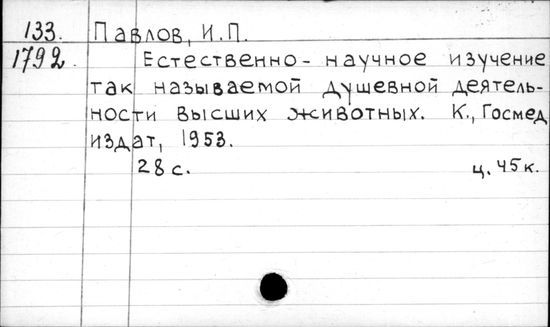 133. Павлов, И.П.
1792. Естественно-научное изучение
так называемой душевной деятель-
ности высших животных. К., Госмед
издат, 1953.
28 с. ц. 45к.